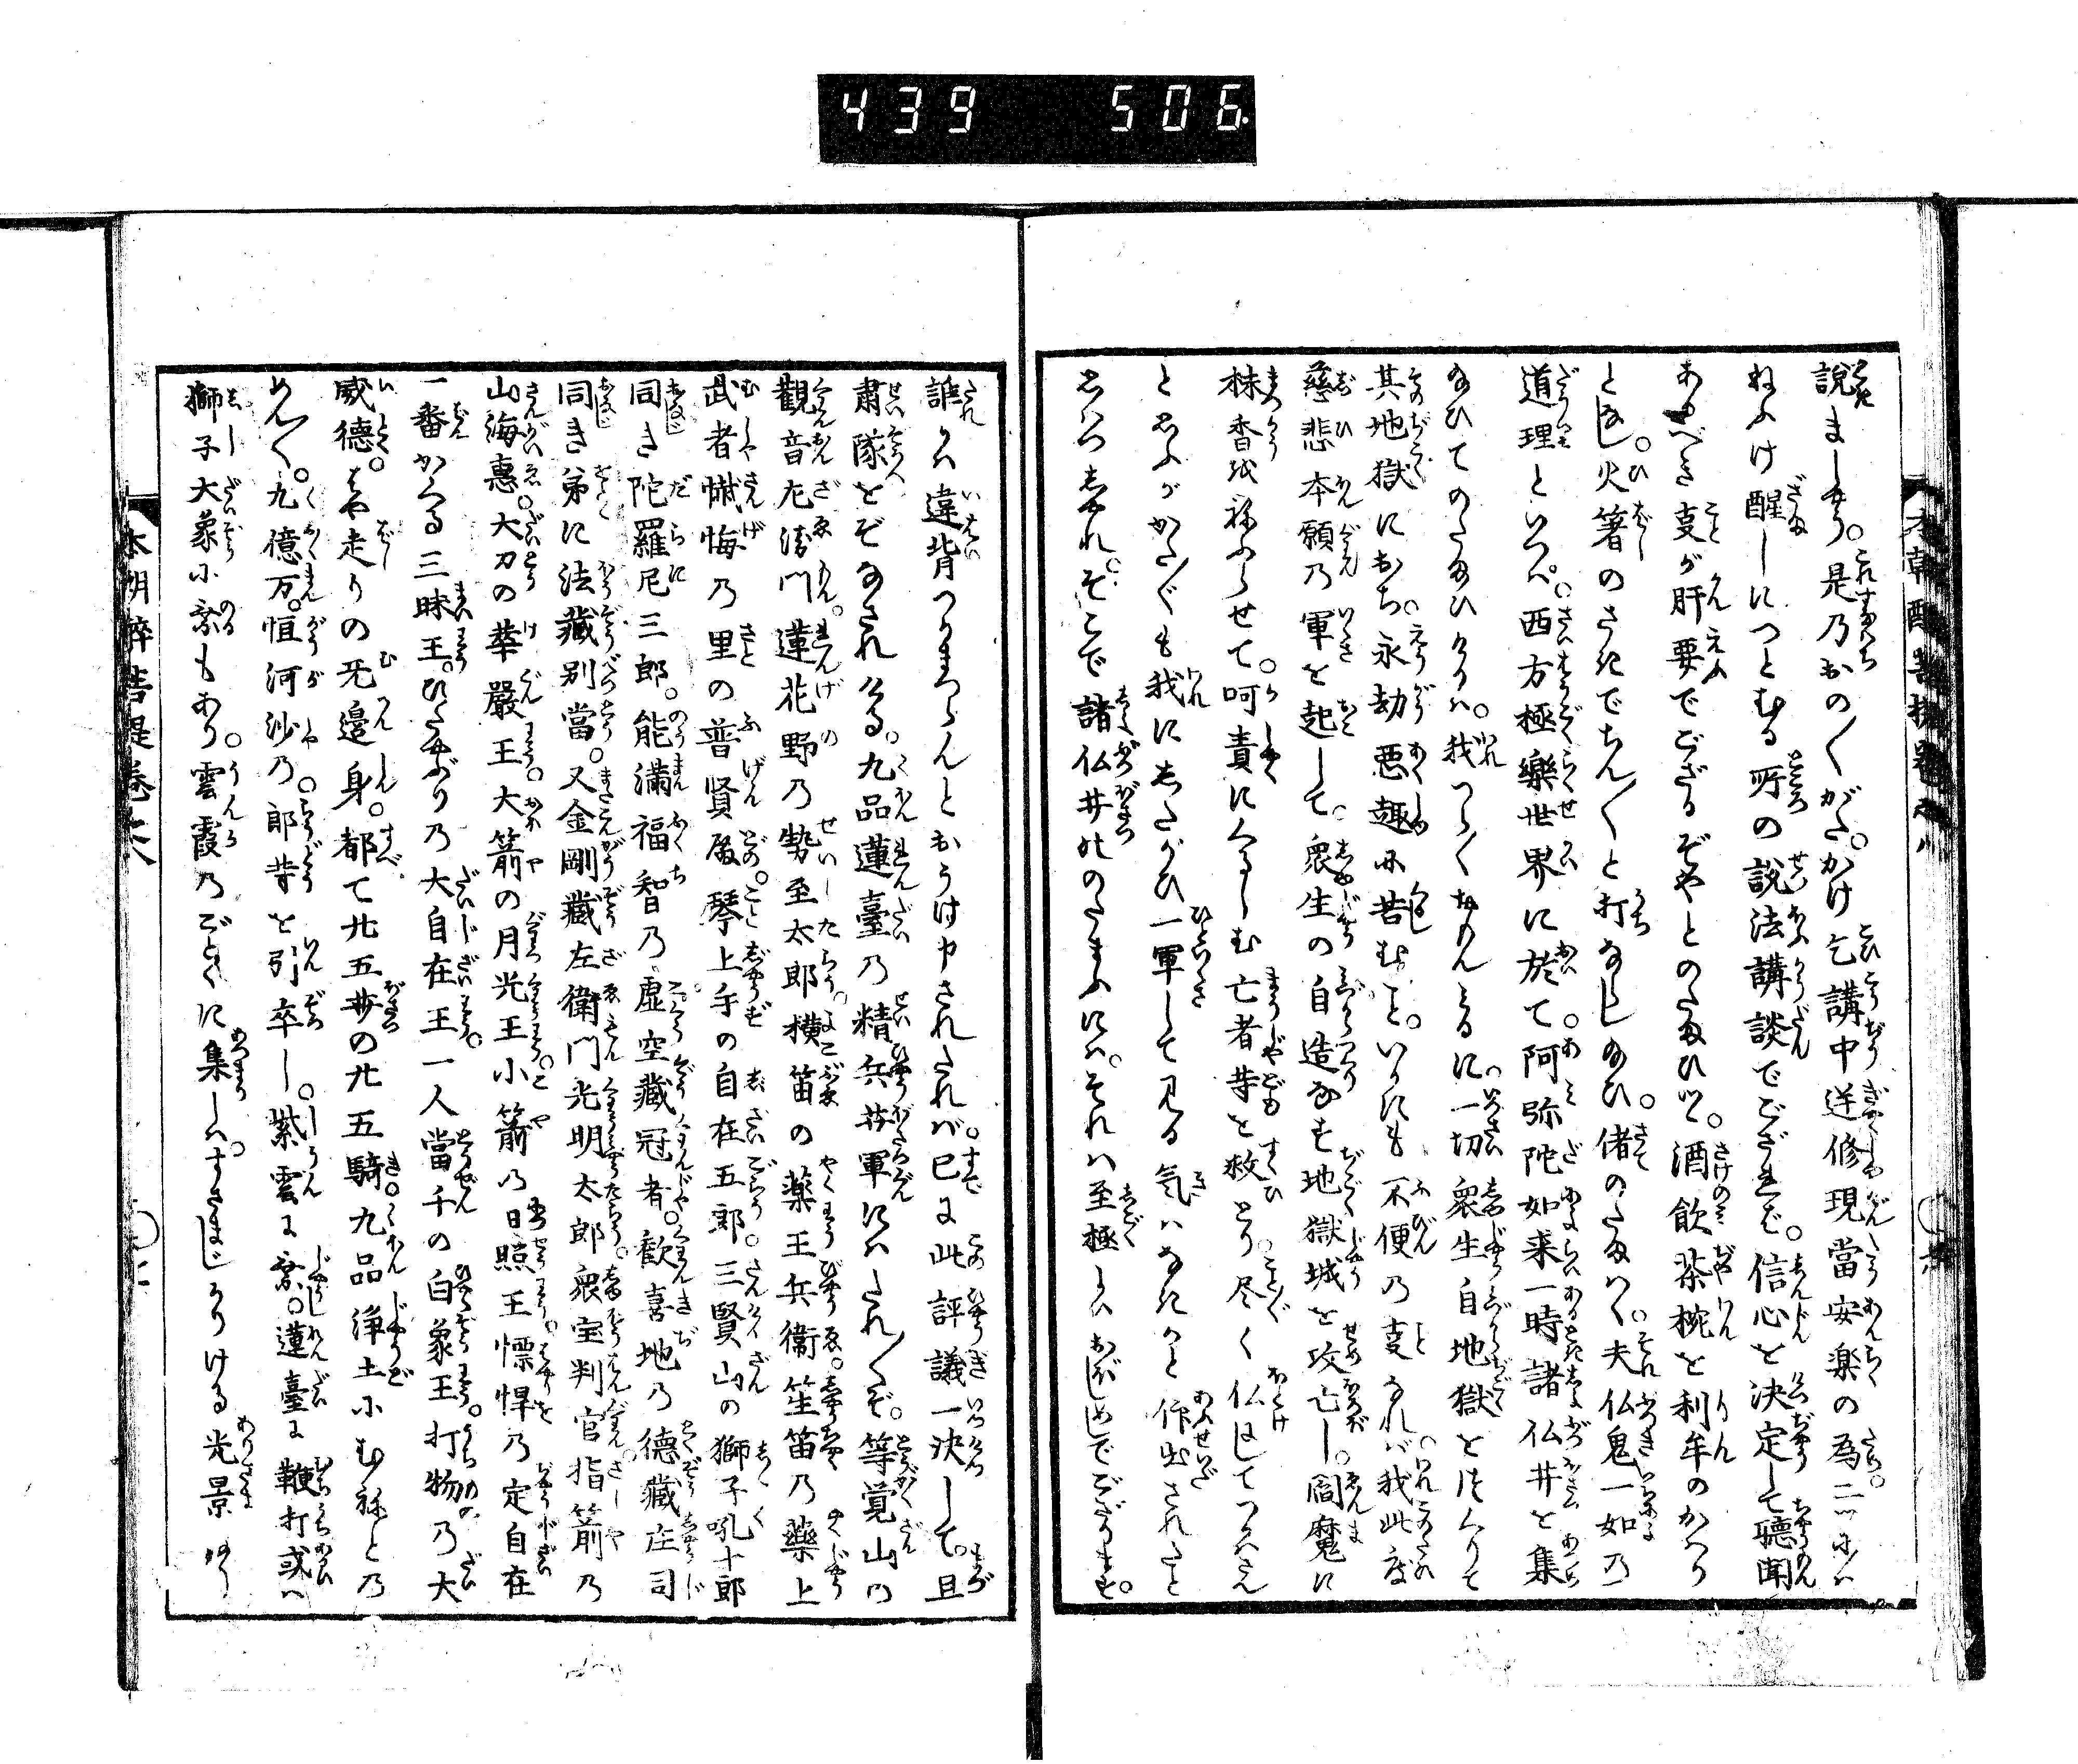 439 506
説ました。是乃おの〳〵がた。かけ乞講中逆修現當安楽の為二ツにハ
ねふけ醒しにつとむる所の説法講談でござれば。信心を決定して聴聞
あるべき㕝が肝要でござるぞやとのたまひツヽ。酒飲茶椀を利牟のかはり
となし。火箸のさきでちん〳〵と打ならしたまひ。偖のたまハく。夫仏鬼一如乃
道理といつハ。西方極樂世界に於て。阿弥陀如来一時諸仏井を集
たまひてのたまひけるハ。我つら〳〵おもんみるに。一切衆生自地獄をつくりて
其地獄におち。永劫悪趣に苦むこと。いかにも不便の㕝なれバ。我此度
慈悲本願乃軍を起して。衆生の自造なす地獄城を攻亡し。閻魔に
抹香を祢ぶらせて。呵責にくるしむ亡者等を救とり。尽く仏にしてつかハさん
とおもふがかた〴〵も我にしたがひ一軍して見る気ハなきかと仰出されたと
おぼしめされ。そこで諸仏井のたまふにハ。それハ至極とハおぼしめしでござります。
誰かハ違背つかまつらんとおうけ申されたれバ。已に此評議一決して。且
肅隊をぞなされける。九品蓮臺の精兵井軍にハたれ〳〵ぞ。等覚山の
觀音左衛門。蓮花野の勢至太郎。横笛の薬王兵衛。笙笛の藥上
武者。懺悔の里の普賢殿。琴上手の自在五郎。三賢山の獅子吼十郎
同き陀羅尼三郎。能満福智の虚空藏冠者。歓喜地の德藏庄司
同き弟に法藏別當。又金剛藏左衛門光明太郎。衆宝判官。指箭の
山海惠。大刀の華嚴王。大箭の月光王。小箭の日照王。慓悍の定自在
一番かくる三昧王。ひたぶりの大自在王。一人當千の白象王。打物の大
威徳。はや走りの無邊身。都て廿五井の廿五騎。九品浄土にむねとの
めん〳〵。九億万。恒河沙の。郎等を引卒し。紫雲に乗。蓮臺に鞭打或ハ
獅子大象に乗もあり。雲霞のごとくに集しハ。すさまじかりける光景なり
本朝醉菩提巻之六